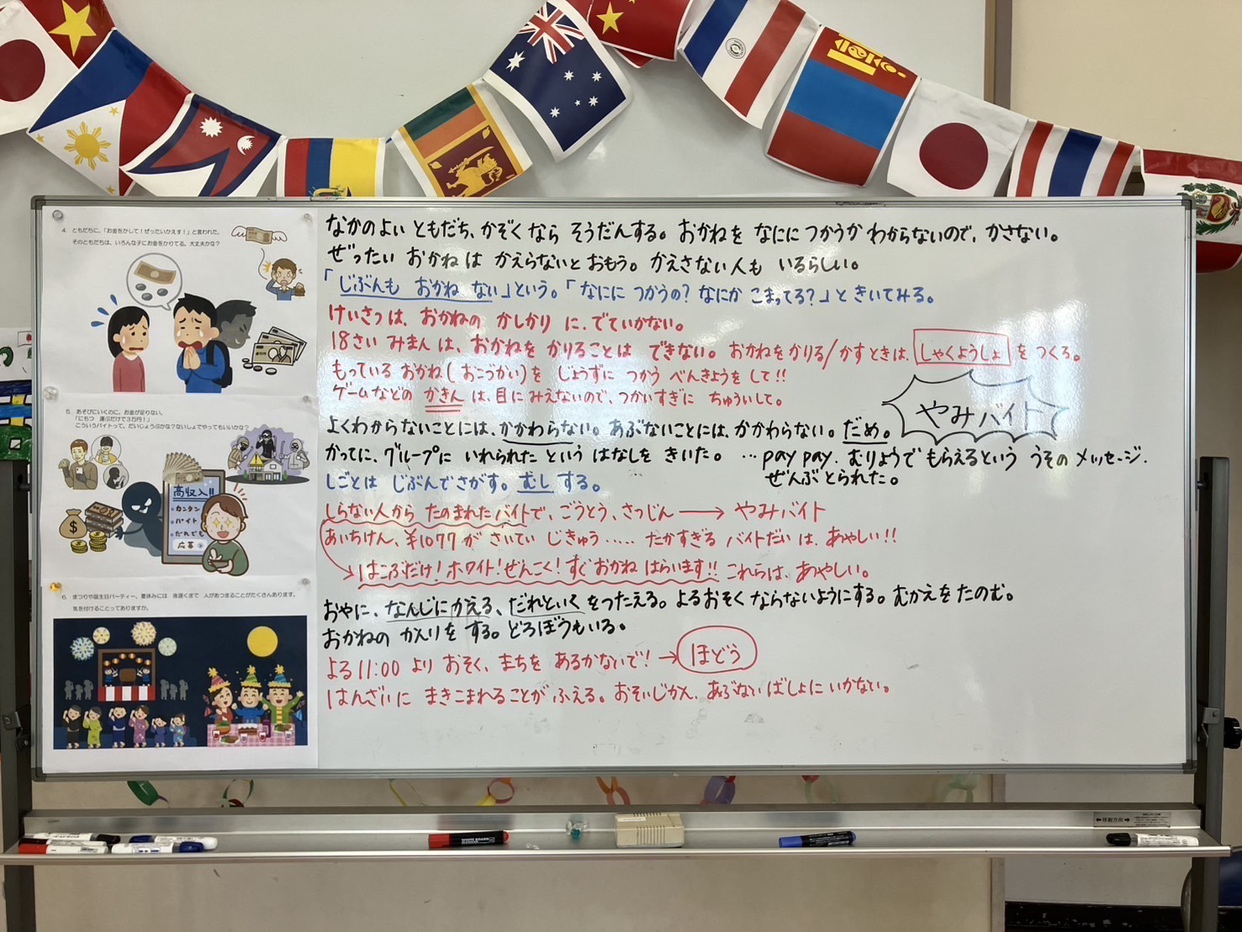 4. ともだちに、「お金をかして！ぜったいかえす！」と言われた。
そのともだちは、いろんな子にお金をかりてる。大丈夫かな？
5. あそびにいくのに、お金が足りない。
「にもつ 運ぶだけで3万円！」
こういうバイトって、だいじょうぶかな？ないしょでやってもいいかな？
高収入!!
・カンタン
・バイト
・だれでも
応募
6. まつりや誕生日パーティー、夏休みには 夜遅くまで 人があつまることがたくさんあります。
気を付けることってありますか。
なかのよい ともだち、かぞくなら そうだんする。おかねを なにに つかうか わからないので、かさない。
ぜったい おかねは かえらないと おもう。かえさない人も いるらしい。
「じぶんも おかね ない」という。「なにに つかうの？なにか こまってる？」と きいてみる。
けいさつは、おかねの かしかり に、でていかない。
18さい みまん は、おかねを かりることは できない。おかねをかりる/かすときは、しゃくようしょ をつくる。
もっている おかね(おこづかい)を じょうずに つかう べんきょうを して!!
ゲームなどの かきん は、目に みえないので、つかいすぎに ちゅういして。
よくわからないことには、かかわらない。あぶないことには、かかわらない。だめ。
やみバイト
かってに、グループに いれられた という はなしを きいた。…pay pay、むりょうで もらえるという うその メッセージ、
ぜんぶ とられた。
しごとは じぶんでさがす。むし する。
しらない人から たのまれたバイトで、ごうとう、さつじん → やみバイト
あいちけん、¥1077 が さいてい じきゅう…… たかすぎる バイトだい は、あやしい!!
はこぶだけ！ホワイト！ぜんこく！すぐ おかね はらいます!! これらは、あやしい。
おやに、なんじにかえる、だれといく をつたえる。よるおそく ならないようにする。むかえを たのむ。
おかねの かんりを する。どろぼうもいる。
よる 11:00 より おそく、まちを あるかないで！→ ほどう
はんざいに まきこまれることが ふえる。おそいじかん、あぶない ばしょに いかない。